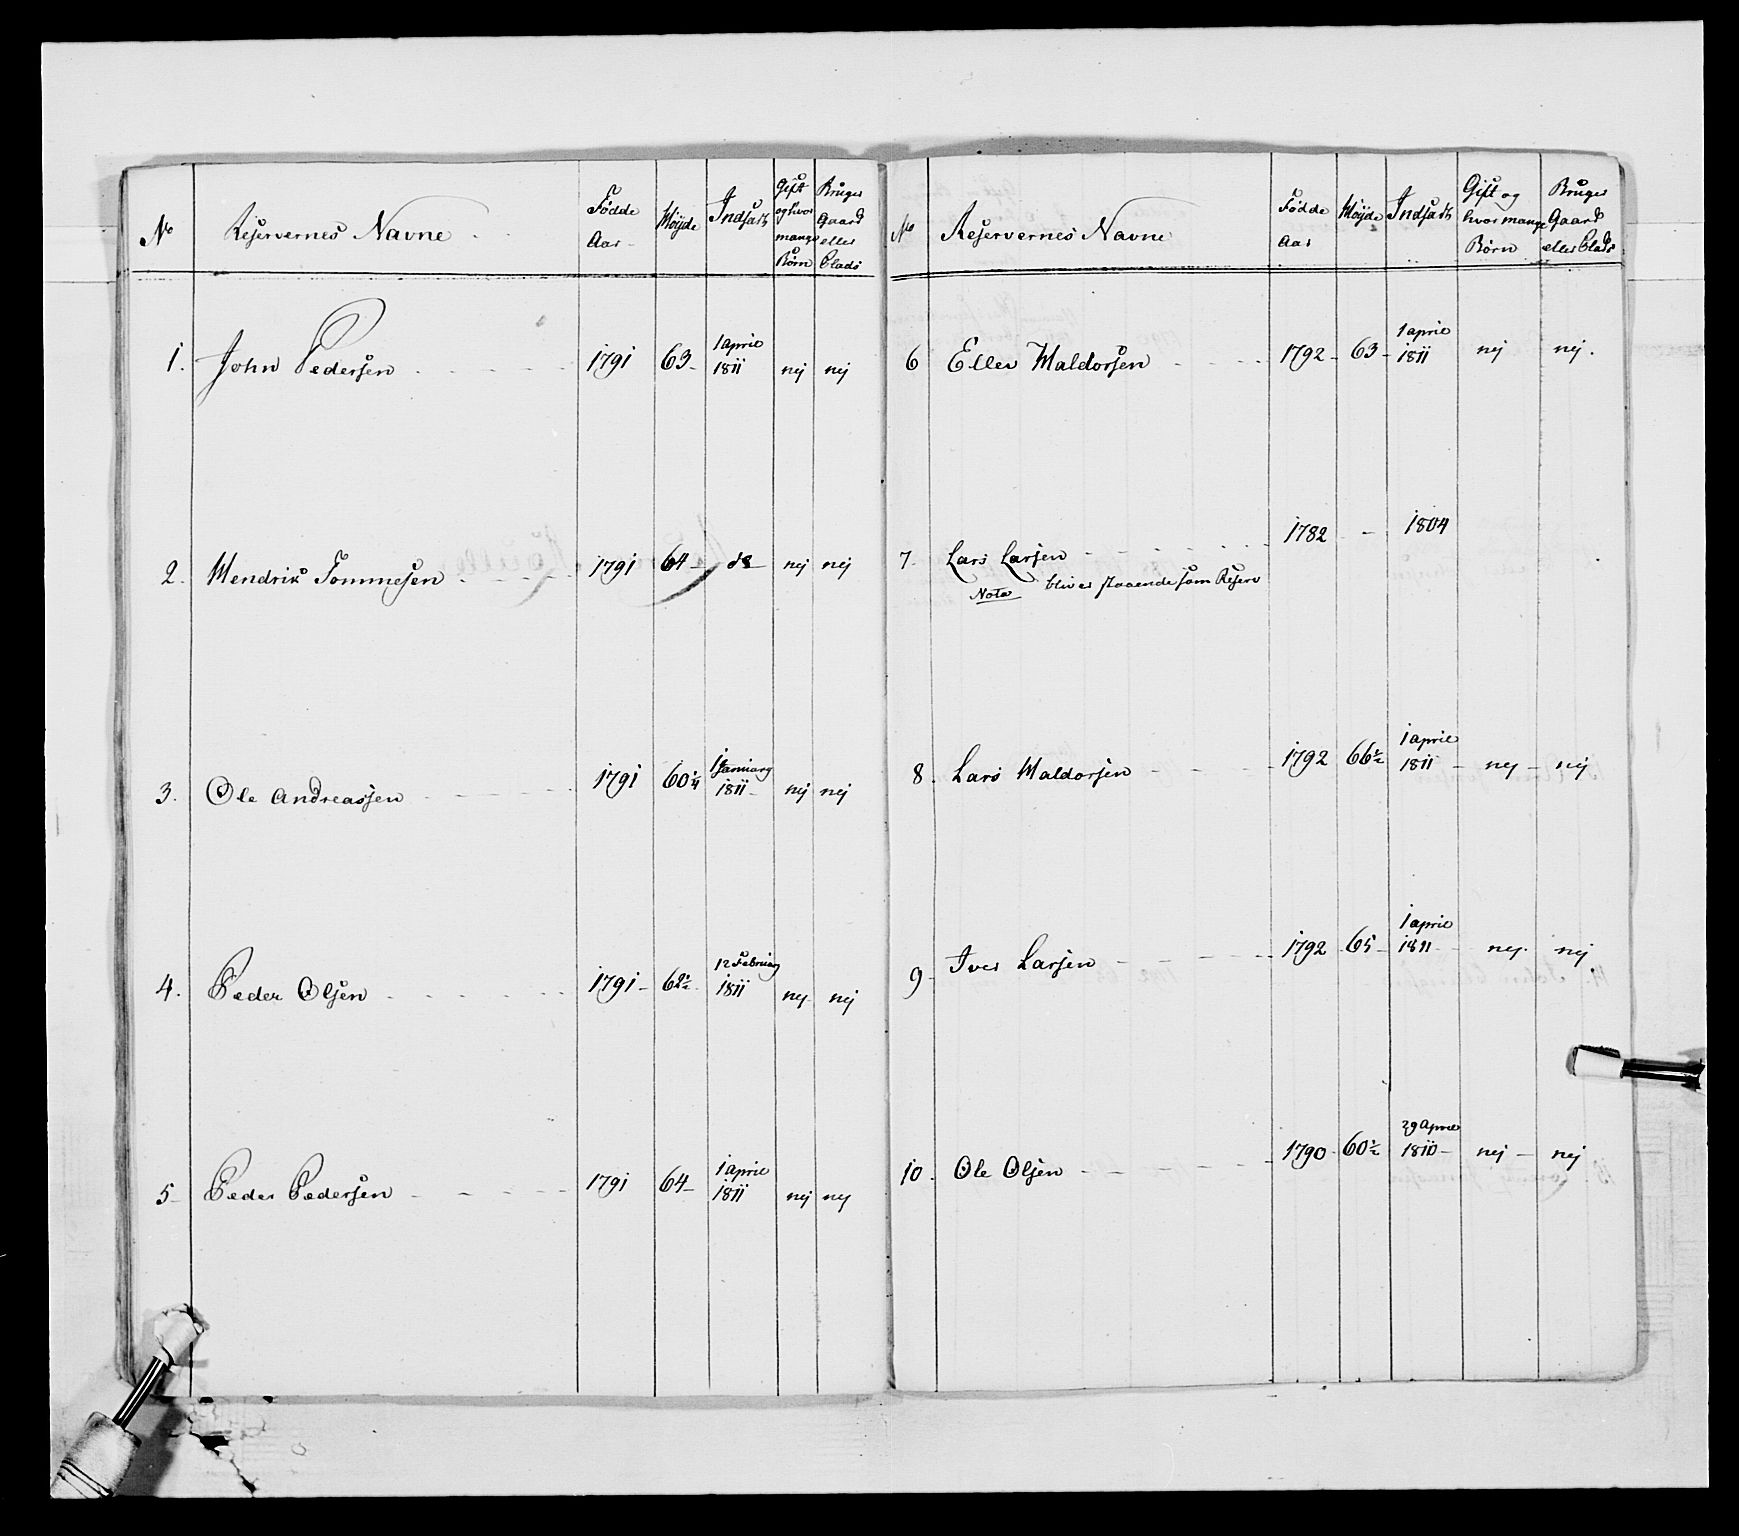 No
Reservernes Navne
Fødde
Aar
Høyde
Indsats
Gift
og hvor
mange
Børn
Bruger
Gaard
eller
Plads
1. John Pedersen 1791 63 1 April 1811 nej nej
2. Hendrik Tommesen 1791 64 do nej nej
3. Ole Andreassen 1791 60 1/4 1 January 1811 nej nej
4. Peder Olsen 1791 62 1/2 12 February 1811 nej nej
5 Peder Pedersen 1791 64 1 April 1811 nej nej
No
Reservernes Navne
Fødde
Aar
Høyde
Indsats
Gift og
hvor mange
Børn
Bruger
Gaard
eller Plads
6 Eller Haldorsen 1792 63 1 April 1811 nej nej.
7. Lars Larsen 1782 - 1804
Nota bliver staaende som Reserv
8. Lars Haldorsen 1792 66 1/2 1 April 1811 nej nej
9 Iver Larsen 1792 65 1 April 1811 nej nej
10. Ole Olsen 1790 60 1/2 29 April 1810 nej nej